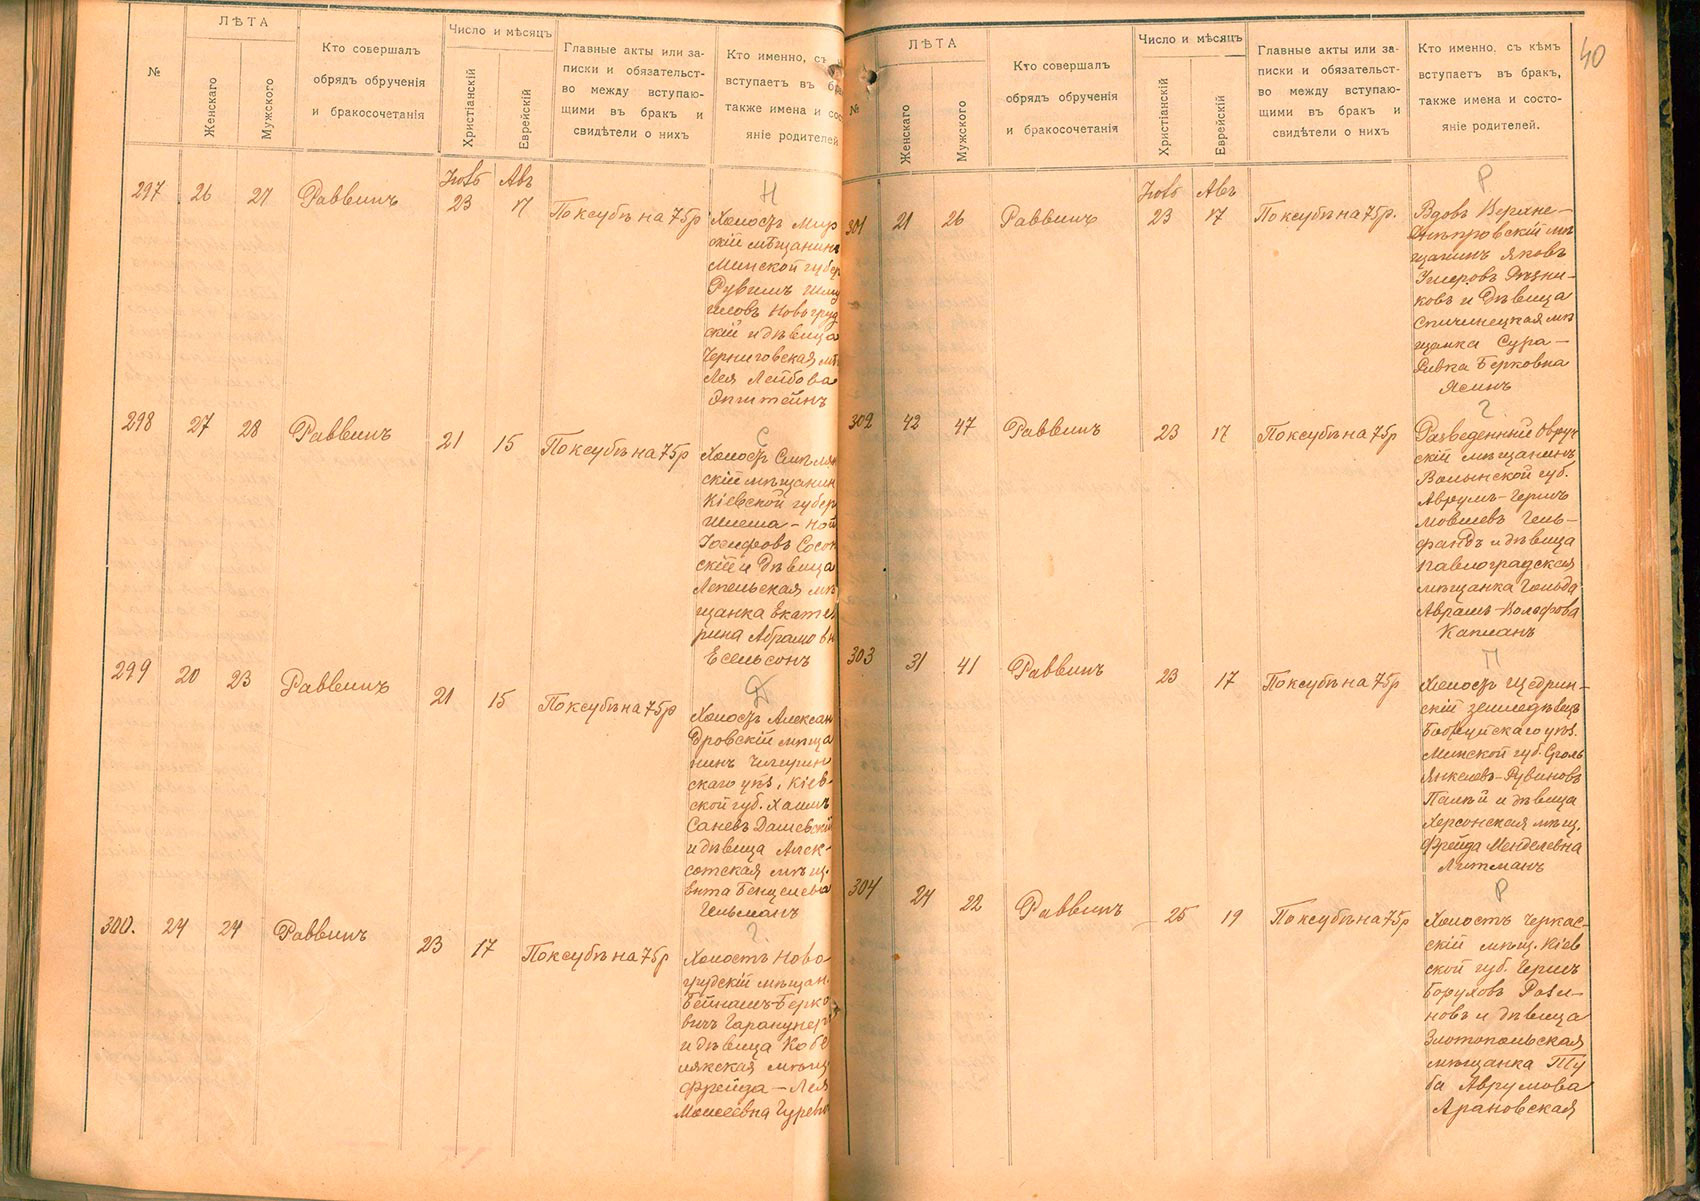 ЛѢТА
Число и мѣсяцъ
№
Женскаго
Мужского
Кто совершалъ
обрядъ обрученія
и бракосочетанія
Христіанскій
Еврейскій
Главные акты или за-
писки и обязательст-
во между вступаю-
щими въ бракъ и
свидѣтели о нихъ
Кто именно, съ
вступаетъ въ бра
также имена и сос
яніе родителей
297 26 27 Раввинъ
Авъ
23 17 По ксубѣ на 75р
Н
Холостъ Мир
скій мѣщанинъ
Минской губер
Рувимъ Шму
иловъ Новогруд
скій и дѣвица
Черниговская мѣ
Лея Лейбова
Эпштейнъ
298 27 28 Раввинъ
21 15 По ксубѣ на 75р
С
Холостъ Смѣлян
скій мѣщанин
Кіевской губер
Іосифовъ Сосон
скій и дѣвица
Лепельская мѣ
щанка Екате
рина Абрамовн
Есельсонъ
299 20 23 Раввинъ
21 15 По ксубѣ на 75р
Д
Холостъ Алексан
дровскій мѣща
нинъ Чигирин
скаго уѣз. Кіев-
ской губ. Хаимъ
Саневъ Дашевскій
и дѣвица Алек-
сотская мѣщ.
Гельманъ
300. 24 24 Раввинъ
23 17 По ксубѣ на 75р
Г.
Холостъ Ново
грудскій мѣщан.
Бейнашъ Берко
вичъ
и дѣвица Кобе
лякская мѣщ
Фрейда-Лея
Моисеевна Гуреви
40
ЛѢТА
Число и мѣсяцъ
№
Женскаго
Мужского
Кто совершалъ
обрядъ обрученія
и бракосочетанія
Христіанскій
Еврейскій
Главные акты или за-
писки и обязательст-
во между вступаю-
щими въ бракъ и
свидѣтели о нихъ
Кто именно, съ кѣмъ
вступаетъ въ бракъ,
также имена и состо-
яніе родителей.
301 21 26 Раввинъ
Авъ
23 17 По ксубѣ на 75р.
Р
Вдовъ Верхне-
днѣпровскій мѣ
щанинъ Яковъ
Рѣзни-
ковъ и дѣвица
Спичинецкая мѣ
щанка Сура-
Ривка Берковна
Ясинъ
302 42 47 Раввинъ
23 17 По ксубѣ на 75р
Г.
Разведенный Овруч
скій мѣщанинъ
Волынской губ.
Аврумъ-Гершъ
Мовшевъ Гель-
фандъ и дѣвица
Павлоградская
мѣщанка Гольда
Аврамъ-Вольфова
Капланъ
303 31 41 Раввинъ
23 17 По ксубѣ на 75р
П
Холостъ Щедрин-
скій земледѣлецъ
Бобруйскаго уѣз.
Минской губ. Сроль
Янкелевъ-Рувиновъ
Палѣй и дѣвица
Херсонская мѣщ.
Фрейда Менделевна
Литманъ
304 24 22 Раввинъ
25 19 По ксубѣ на 75р
Р
Холостъ Черкас-
скій мѣщ. Кіев
ской губ. Гершъ
Боруховъ Рази-
новъ и дѣвица
Златопольская
мѣщанка Ту
ба Аврумова
Арановская